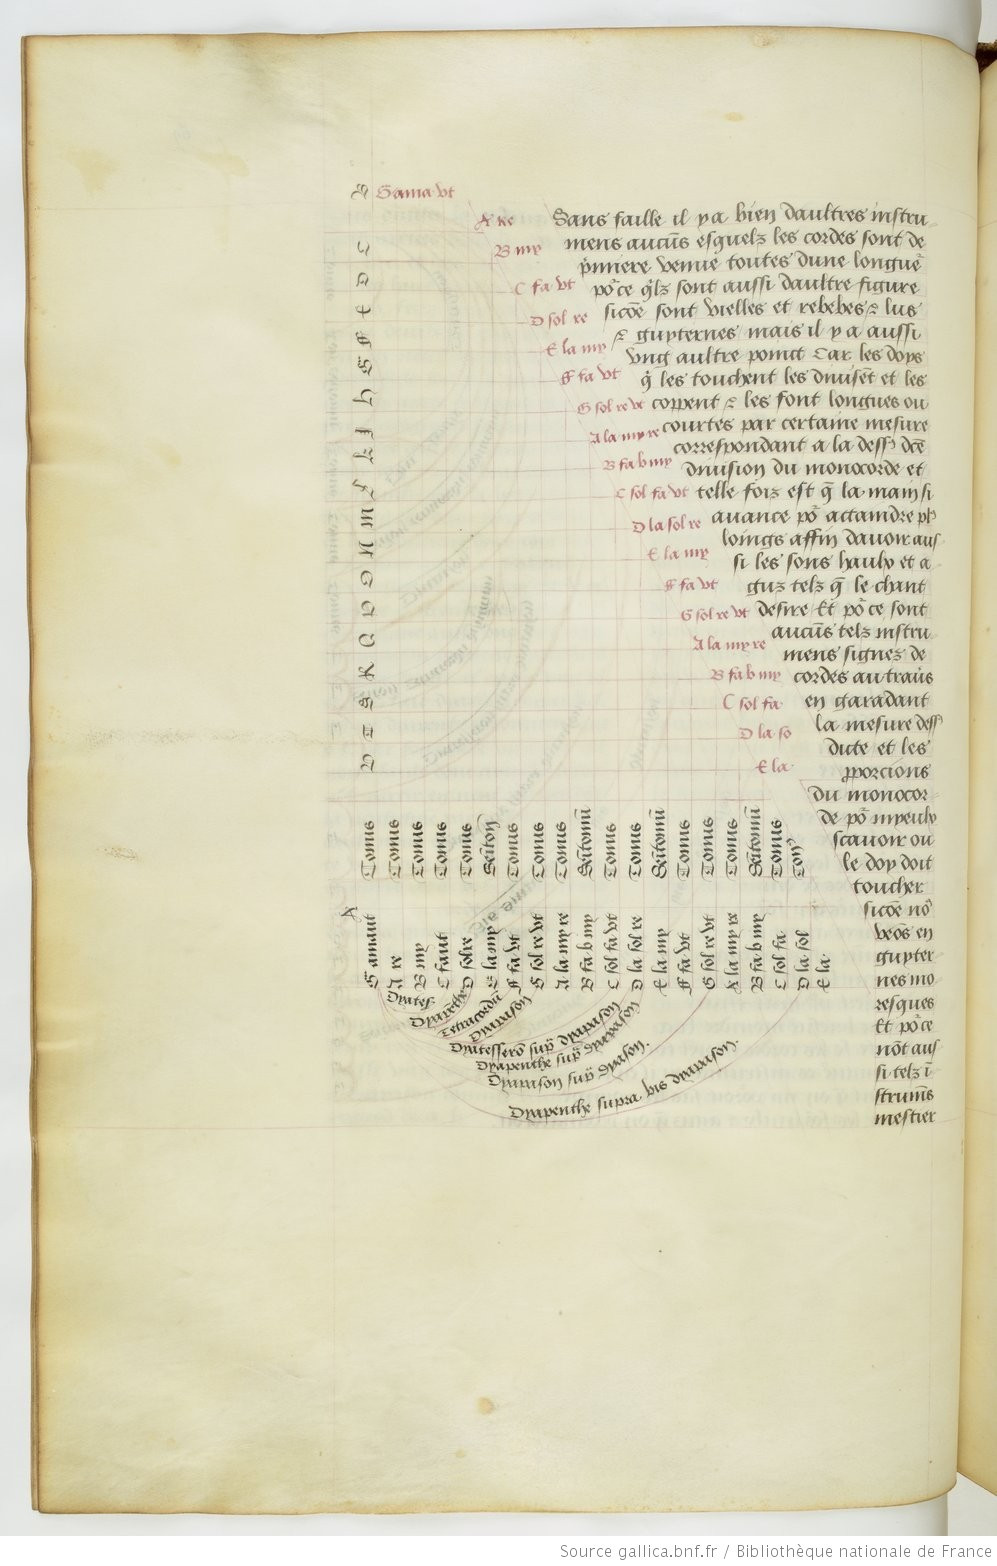 Gama vt
A re
B my
C fa vt
D sol re
E la my
F fa vt
G sol re vt
A la my re
B fa b my
C sol fa vt
D la sol re
E la my
F fa vt
G sol re vt
A la my re
B fa b my
C sol fa
D la so
E la
Sans faille il y a bien daultres instru
mens aucu̅s esquelz les cordes sont de
p̅miere venue toutes dune longue᷑
po᷑ce q̓lz sont aussi daultre figure
sico̅e sont vielles et rebebes ⁊ lus
⁊ guyternes mais il y a aussi
vng aultre poinct Car les doys
q̓ les touchent les diuise̅t et les
coppent ⁊ les font longues ou
courtes par certaine mesure
correspondant a la dess᷒ dc̅e
diuision du monocorde et
telle foiz est q̅ la main si
auance po᷑ actaindre pl᷒
loings affin dauoir aus
si les sons haulx et a
guz telz q̅ le chant
desire Et po᷑ ce sont
aucu̅s telz instru
mens signez de
cordes au trau̅s
en garadant
la mesure dess᷒
dicte et les
ꝓporcions
du monocor
de po᷑ myeulx
scauoir ou
le doy doit
toucher
sico̅e no᷒
veo̅s en
guyter
nes mo
resques
Et po᷑ce
no̅t aus
si telz i̅
strume̅s
mestier
Tonus
Tonus
Tonus
Tonus
Tonus
Se̅iton̅
Tonus
Tonus
Tonus
Se̅itoniu̅
Tonus
Tonus
Se̅itoniu̅
Tonus
Tonus
Tonus
Se̅itoniu̅
Tonus
Ton᷒
A
Gamaut
A re
B my
C faut
D solre
E la my
F fa vt
G sol re vt
A la my re
B fa b my
C sol fa vt
D la sol re
E la my
F fa vt
G sol re vt
A la my re
B fa b my
C sol fa
D la sol
E la
Dyates
Dyape̅the
Tetracordu̅
Dyapason
Dyatessero̅ supᷓ dyapason
Dyapenthe supᷓ dyapason
Dyapason supᷓ dyapason.
Dyapenthe supra bis dyapason.
Source gallica.bnf.fr / Bibliothèque nationale de France